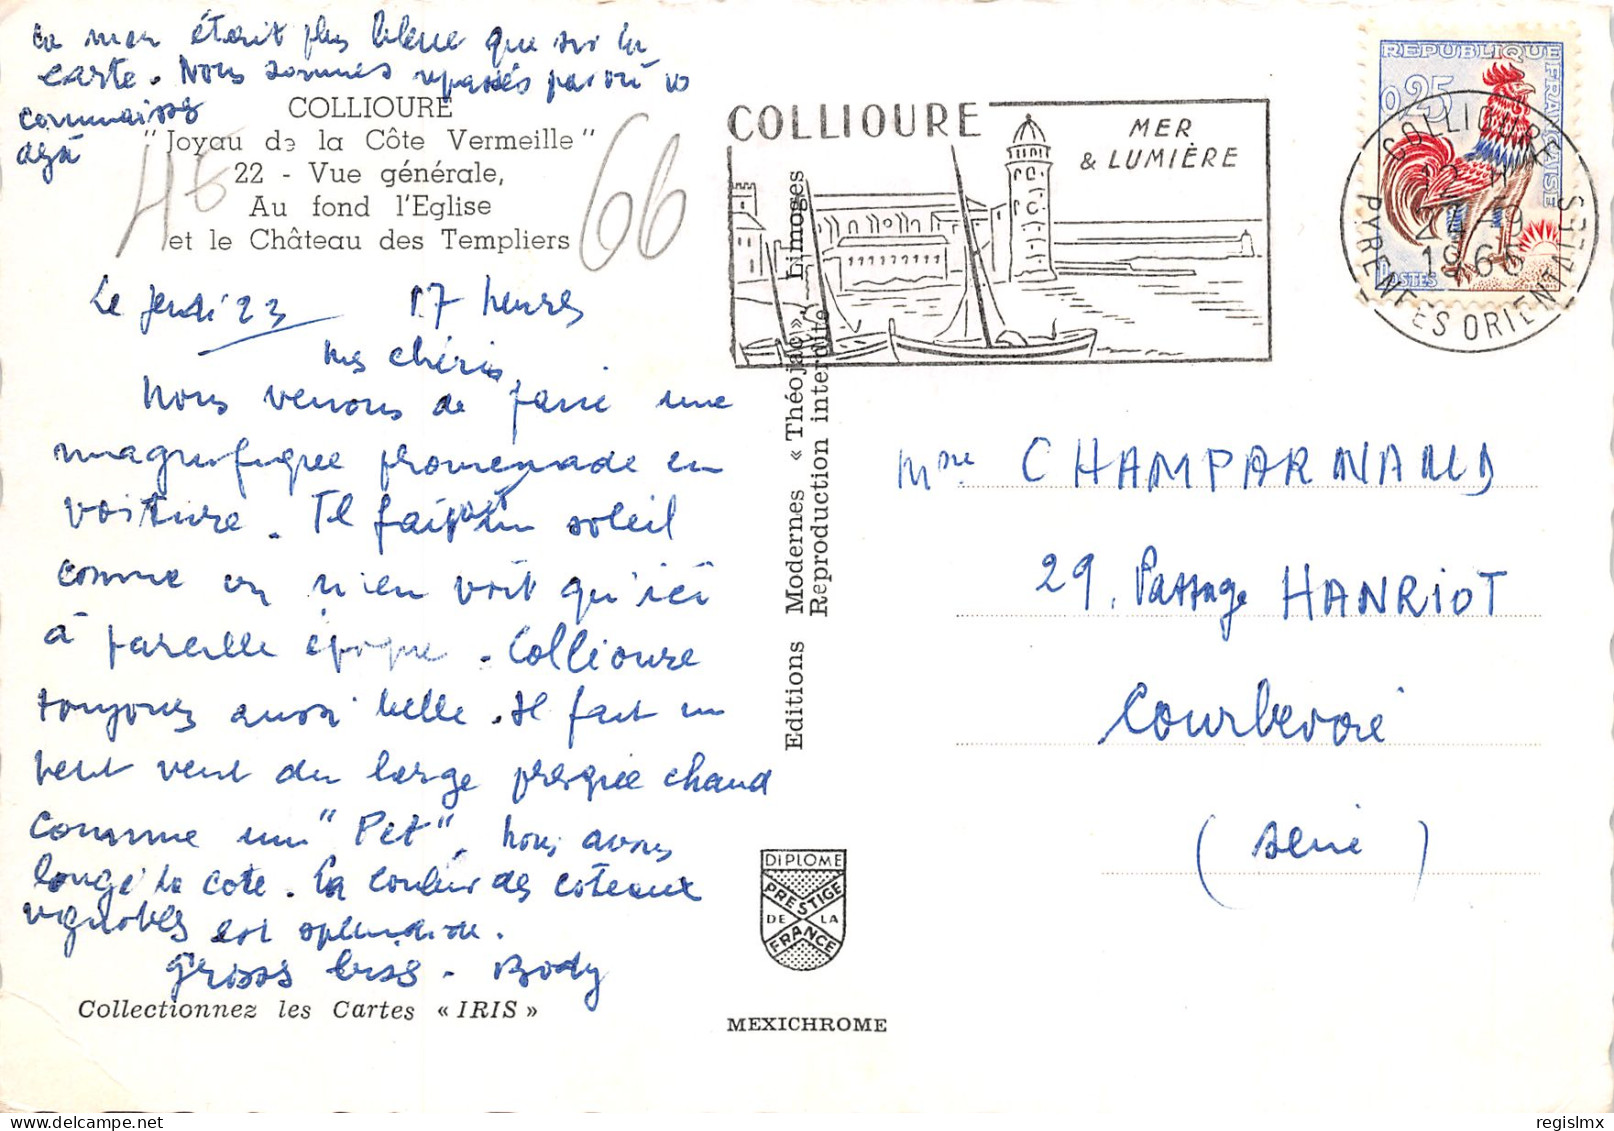 la mer était plus bleue que sur la
carte. Nous sommes repassés par où vs
connaissez
déjà
COLLIOURE
"Joyau de la Côte Vermeille"
22 - Vue générale,
Au fond l'Eglise
et le Château des Templiers
66
Le jeudi 23 17 heures
Mes chéris
Nous venons de faire une
magnifique promenade en
voiture. Il fait un soleil
comme on n'en voit qu'ici
à pareille époque. Collioure
toujours aussi belle. Il fait un
petit vent du large presque chaud
comme un "Pet". Nous avons
longé la cote. La couleur des coteaux
vignobles est splendide.
Grosses bises - Body
Collectionnez les Cartes « IRIS »
Editions Modernes « Théojac » Limoges
Reproduction interdite
DIPLOME
PRESTIGE
DE LA
FRANCE
MEXICHROME
COLLIOURE
MER
& LUMIÈRE
REPUBLIQUE FRANÇAISE
0,25
POSTES
COLLIOURE
12 H
1966
PYRENEES ORIENTALES
Mme CHAMPARNAUD
29, Passage HANRIOT
Courbevoie
(Seine)
regislmx